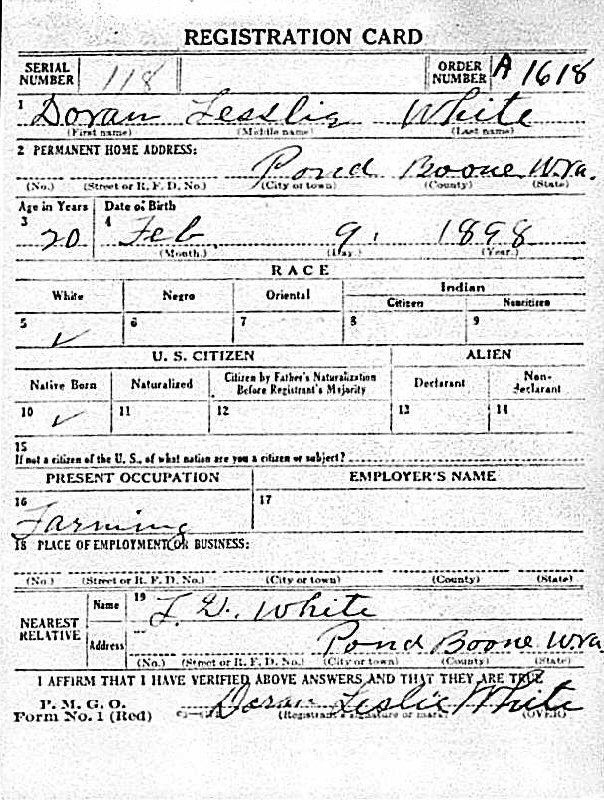 REGISTRATION CARD
SERIAL NUMBER 118 ORDER NUMBER A 1618
1 Doran Lesslie White
(First name) (Middle name) (Last name)
2 PERMANENT HOME ADDRESS:
Pond Boone W.va.
(No.) (Street or R. F. D. No.) (City or town) (County) (State)
Age in Years Date of Birth
3 20 4 Feb 9, 1898
(Month.) (Day.) (Year.)
RACE
White Negro Oriental Indian
Citizen Noncitizen
5 ✓ 6 7 8 9
U. S. CITIZEN ALIEN
Native Born Naturalized Citizen by Father's Naturalization Before Registrant's Majority Declarant Non-declarant
10 ✓ 11 12 13 14
15
If not a citizen of the U. S., of what nation are you a citizen or subject?
PRESENT OCCUPATION EMPLOYER'S NAME
16 Farming 17
18 PLACE OF EMPLOYMENT OR BUSINESS:
(No.) (Street or R. F. D. No.) (City or town) (County) (State)
NEAREST RELATIVE Name 19 White
Address Pond Boone W.va
(No.) (Street or R. F. D. No.) (City or town) (County) (State)
I AFFIRM THAT I HAVE VERIFIED ABOVE ANSWERS AND THAT THEY ARE TRUE
P. M. G. O.
Form No. 1 (Red) Doran Leslie White
(Registrant's signature or mark) (OVER)